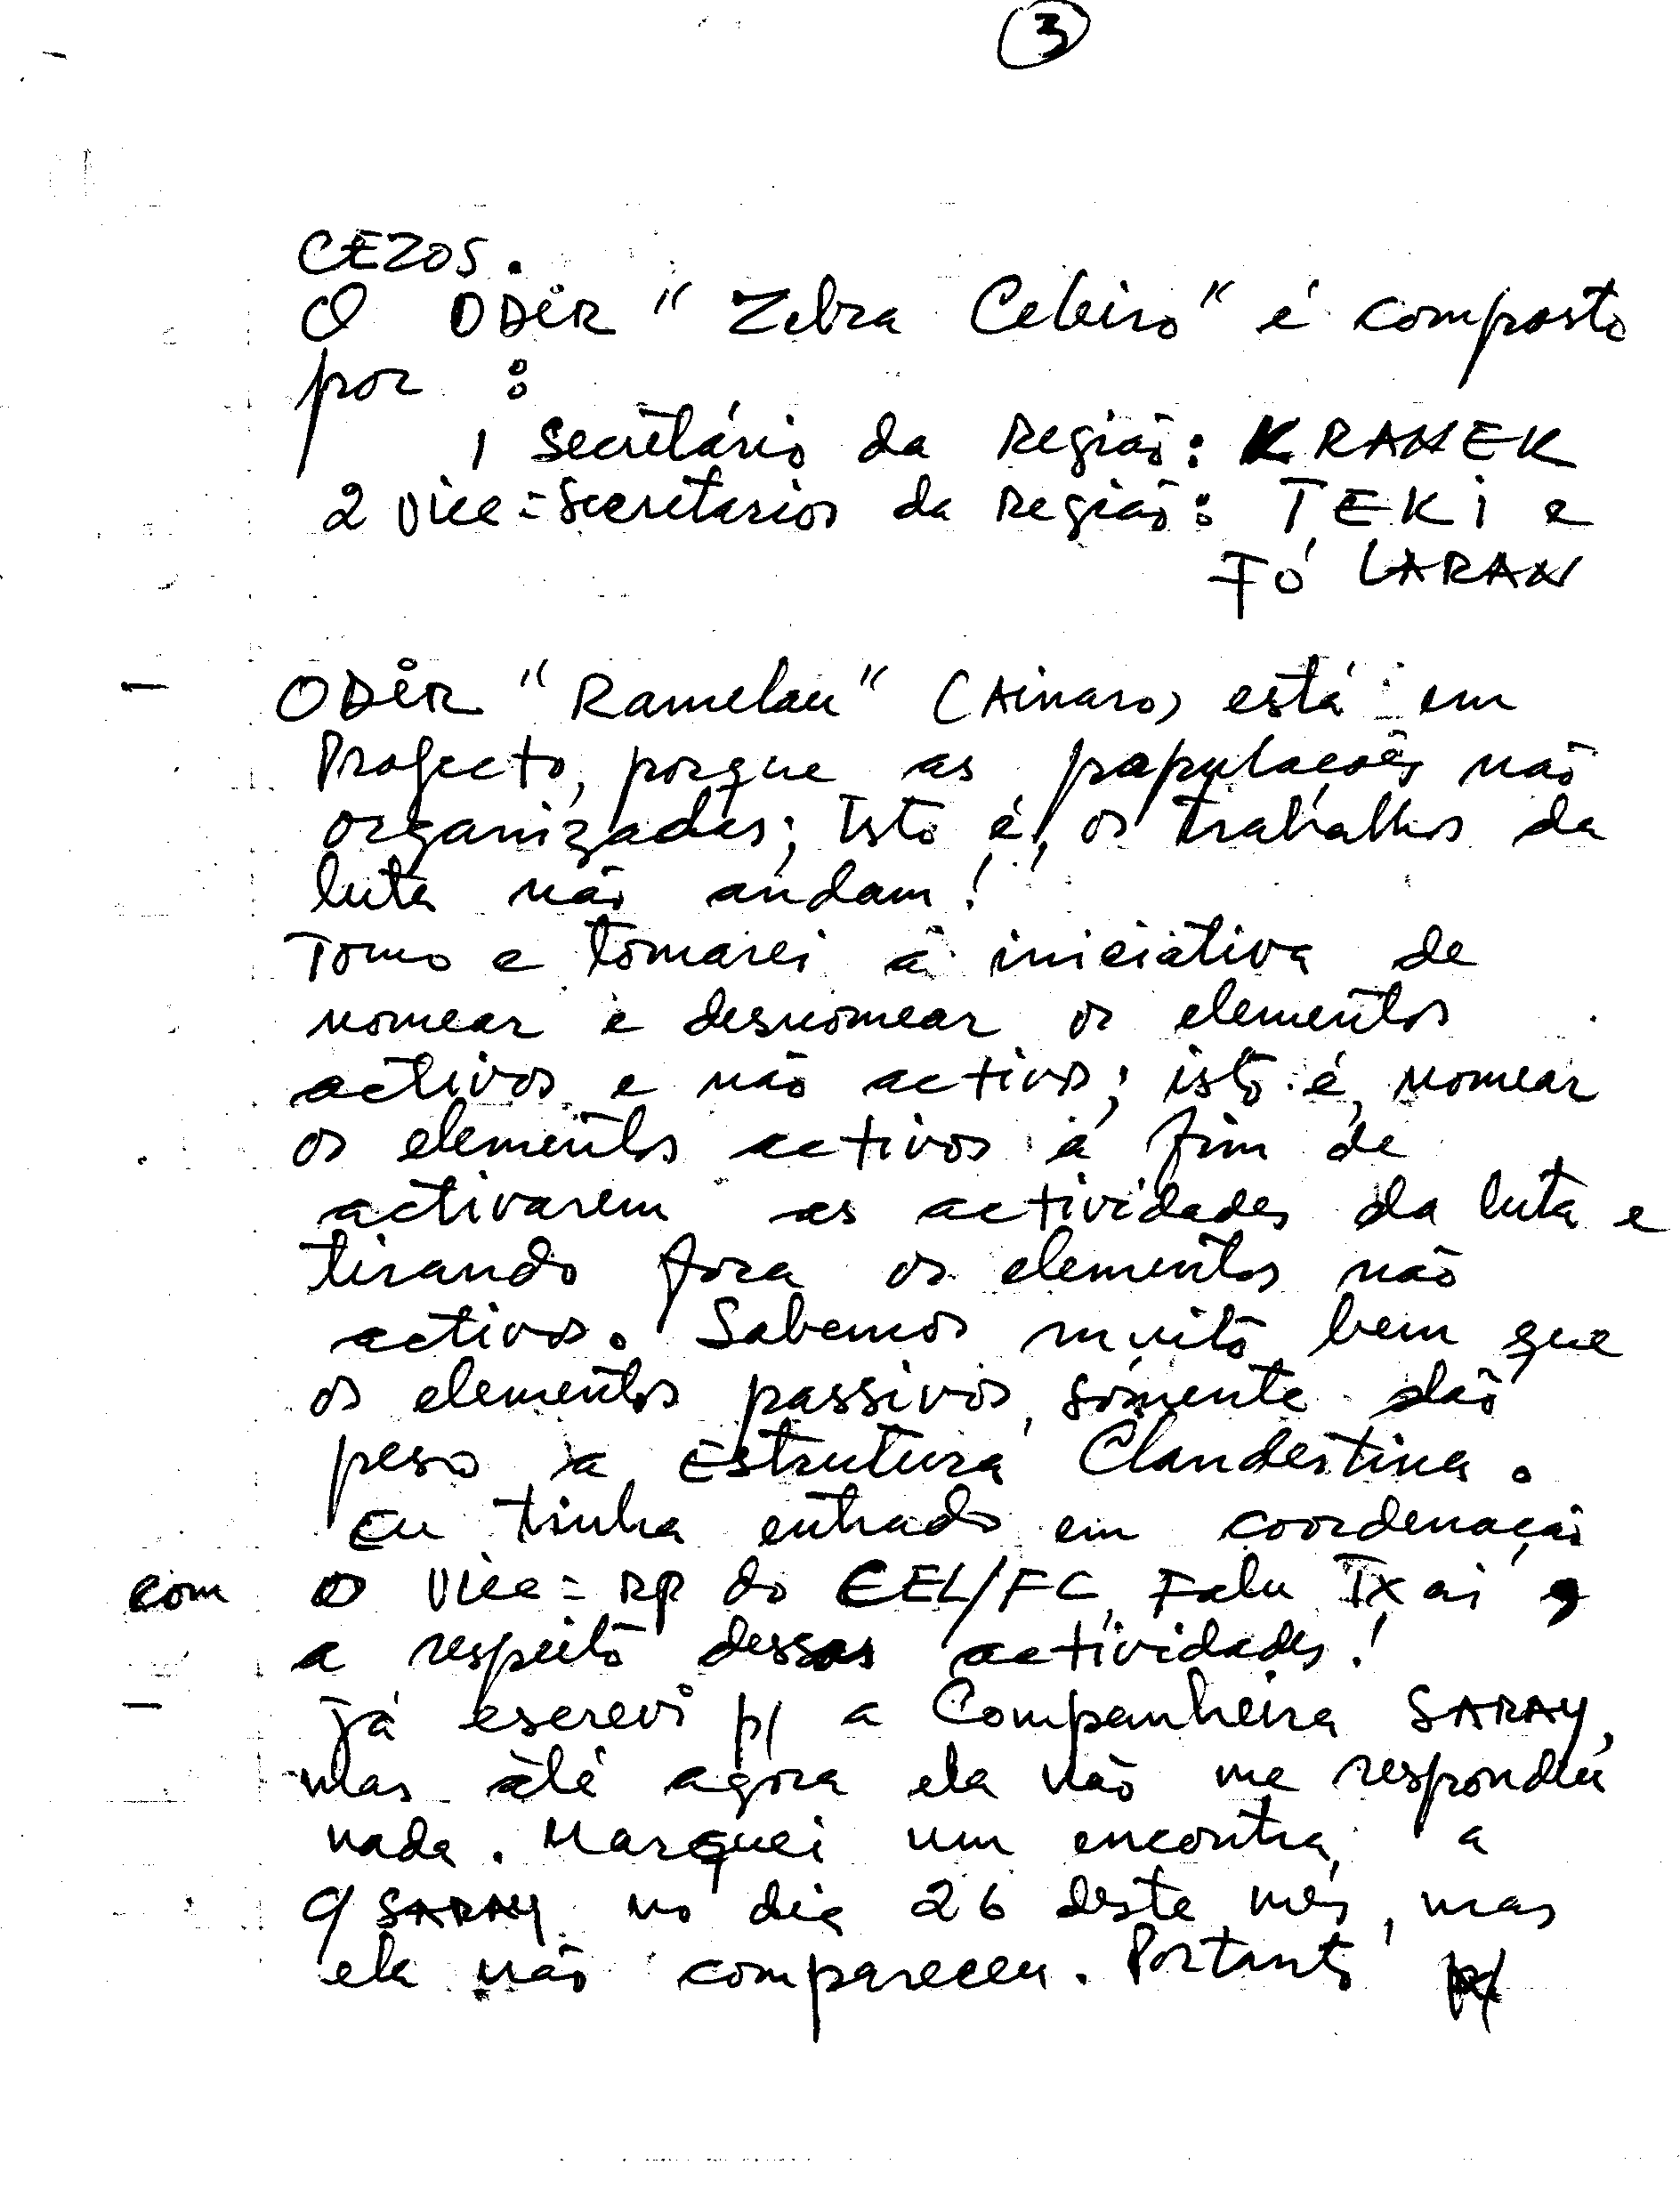 3
CEZOS.
O ODIR "Zebra Celeiro" é composto
por :
1 Secretário da Região: KRANEK
2 Vice=Secretarios da Região: TEKI e
FÓ LARAN
- ODIR "Ramelau" (Ainaro) está em
Projecto, porque as populações não
organizadas; Isto é, os trabalhos da
luta não andam!
Tomo e tomarei a iniciativa de
nomear e desnomear os elementos
activos e não activos; isto é, nomear
os elementos activos a fim de
activarem as actividades da luta e
tirando fora os elementos não
activos. Sabemos muito bem que
os elementos passivos, sómente dão
peso a Estrutura Clandestina.
Eu tinha entrado em coordenação
com o Vice=RP do CEL/FC, Falu Txai,
a respeito dessas actividades!
- Já escrevi p/ a Companheira SARAY,
mas até agora ela não me respondeu
nada. Marquei um encontro, a
c/ SARAY no dia 26 deste mês, mas
ela não compareceu. Portanto